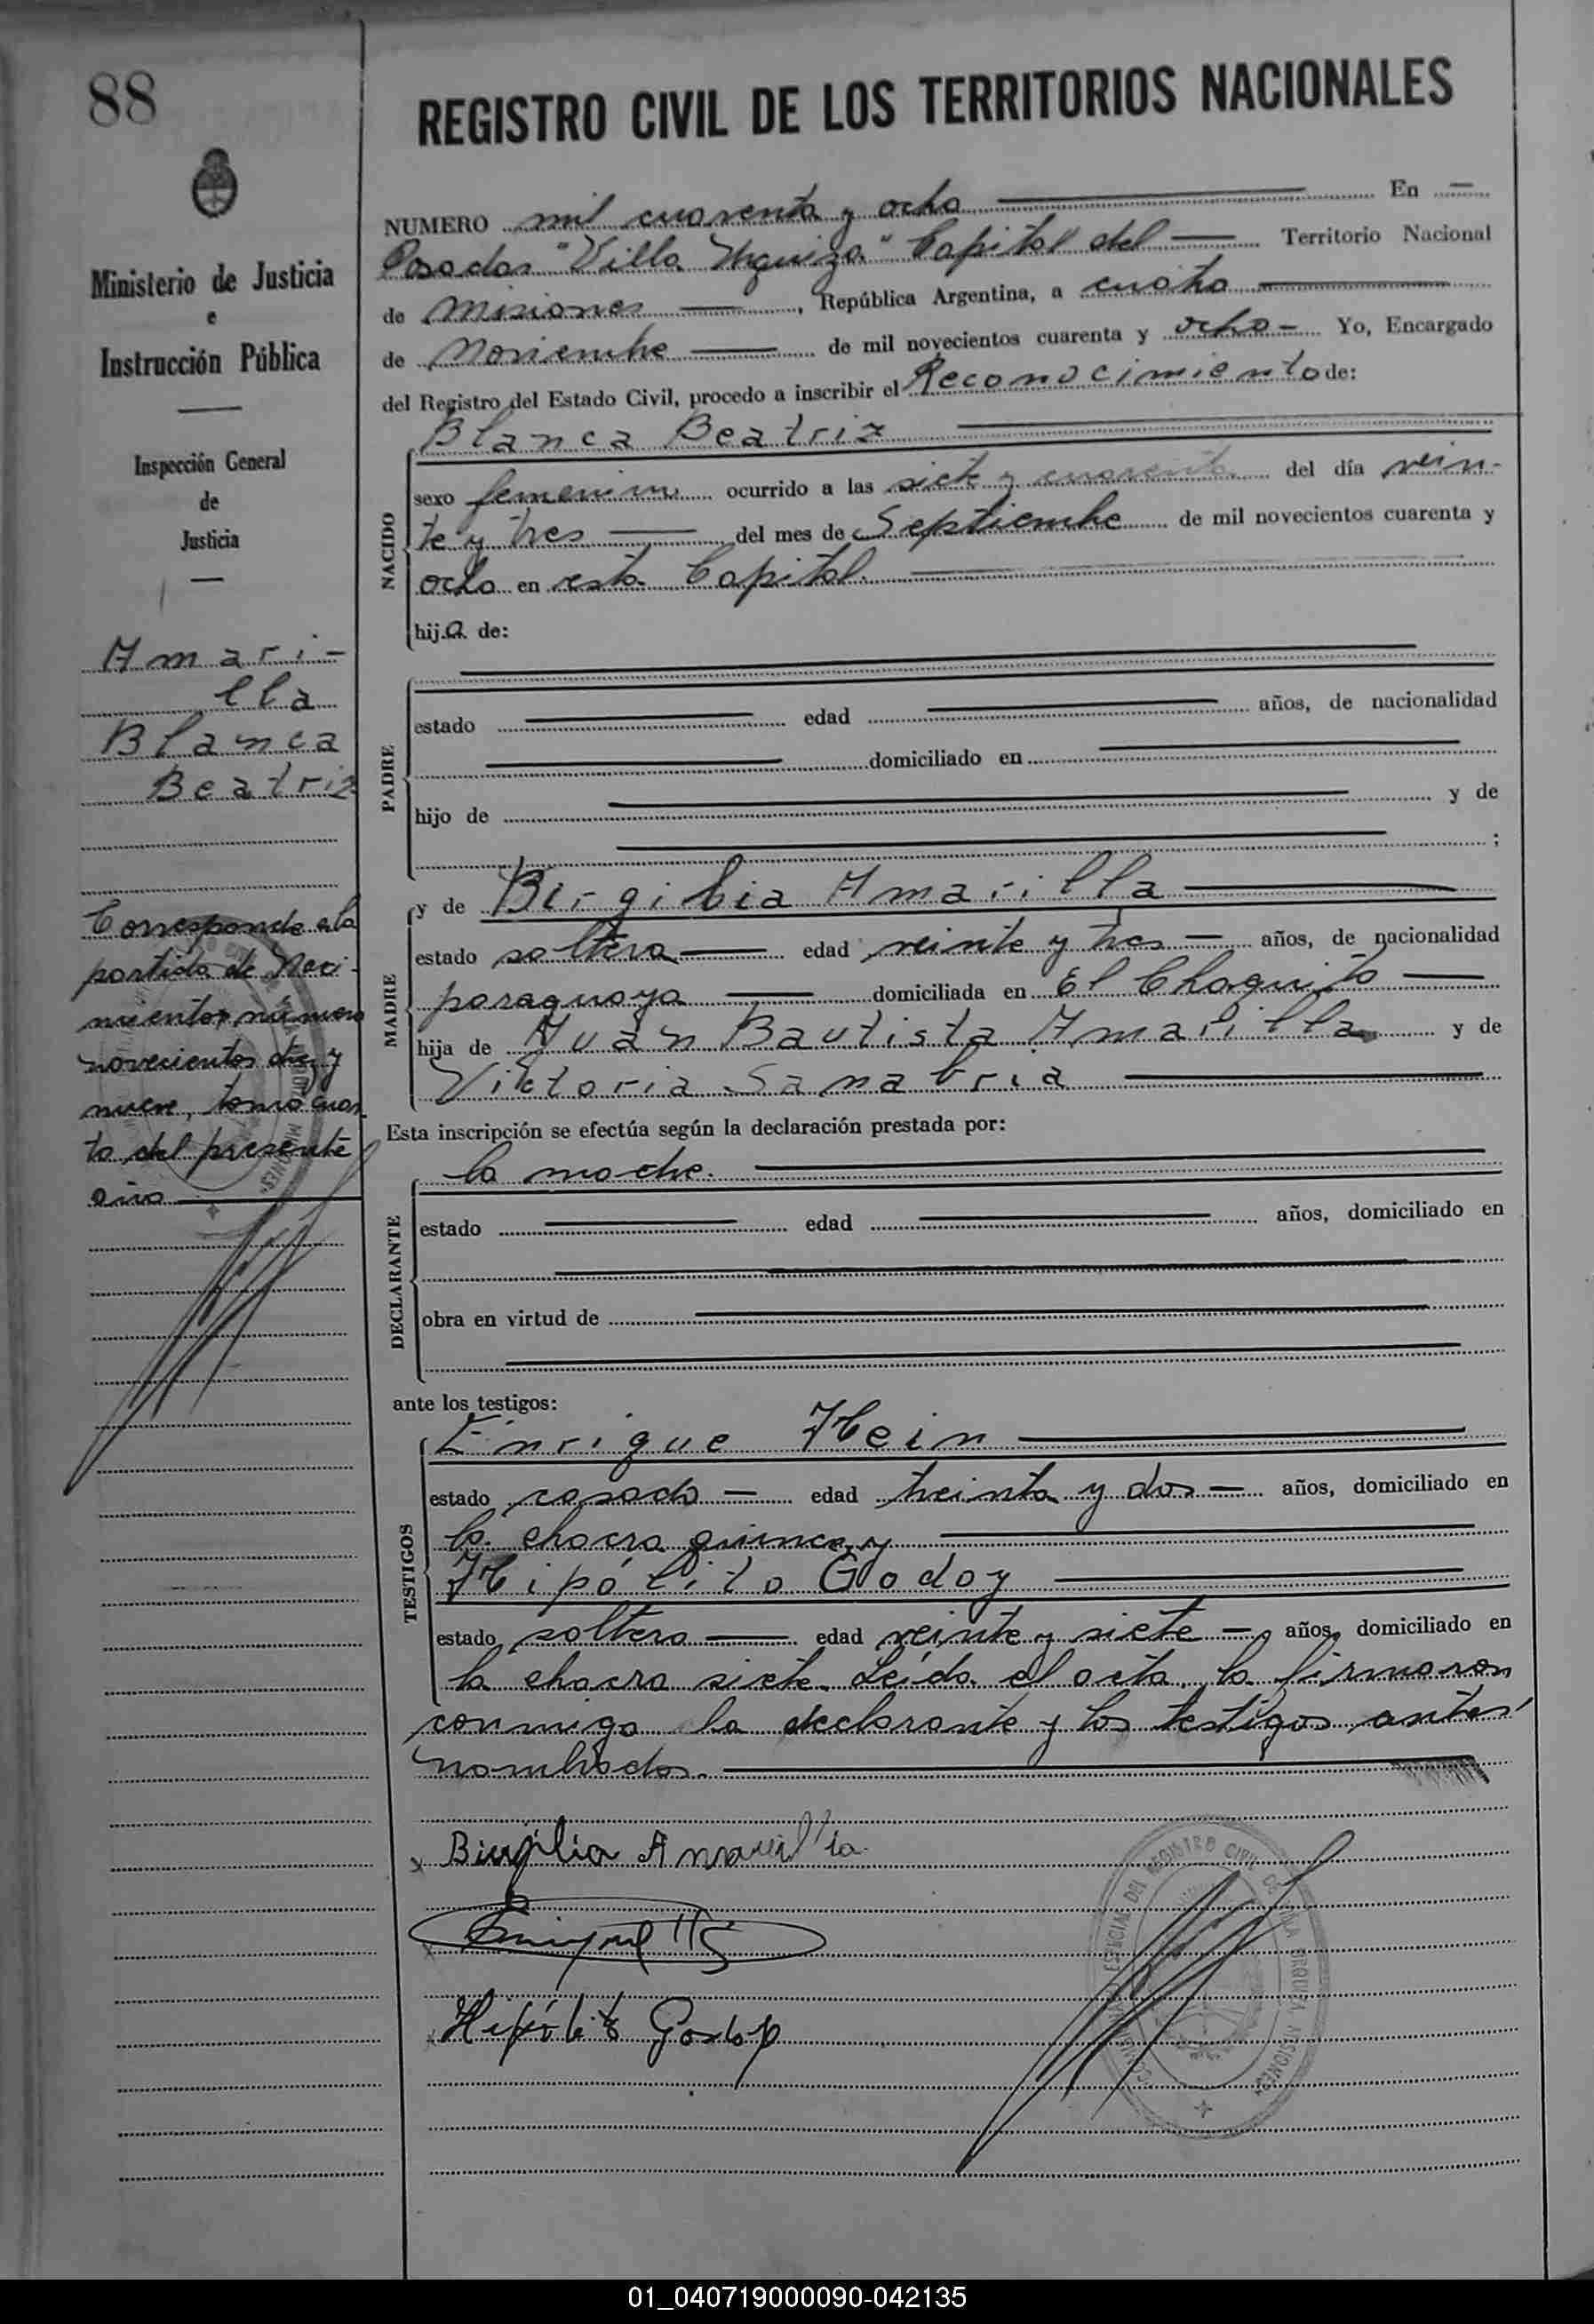 88
REGISTRO CIVIL DE LOS TERRITORIOS NACIONALES
Ministerio de Justicia
e
Instrucción Pública
Inspección General
de
Justicia
Amari-
lla
Blanca
Beatriz
Corresponde a la
partida de Naci-
mientos número
novecientos diez y
nueve, tomo cuar
to del presente
año
NUMERO mil cuarenta y ocho En
Posadas "Villa Urquiza" Capital del Territorio Nacional
de Misiones, República Argentina, a cuatro
de Noviembre de mil novecientos cuarenta y ocho Yo, Encargado
del Registro del Estado Civil, procedo a inscribir el Reconocimiento de:
Blanca Beatriz
NACIDO
sexo femenino ocurrido a las siete y cuarenta del día vein-
te y tres del mes de Septiembre de mil novecientos cuarenta y
ocho en esta Capital.
hija de:
PADRE
estado edad años, de nacionalidad
domiciliado en
hijo de y de
;
y de Birgilia Amarilla
MADRE
estado soltera edad veinte y tres años, de nacionalidad
paraguaya domiciliada en El Chaquito
hija de Juan Bautista Amarilla y de
Victoria Sanabria
Esta inscripción se efectúa según la declaración prestada por:
la madre.
DECLARANTE
estado edad años, domiciliado en
obra en virtud de
ante los testigos:
Enrique Hein
TESTIGOS
estado casado edad treinta y dos años, domiciliado en
la chacra quince y
Hipólito Godoy
estado soltero edad veinte y siete años, domiciliado en
la chacra siete. Leída el acta, la firmaron
conmigo la declarante y los testigos antes
nombrados.
x Birgilia Amarilla
Hipólito Godoy
REGISTRO CIVIL DE VILLA URQUIZA MISIONES
01_040719000090-042135